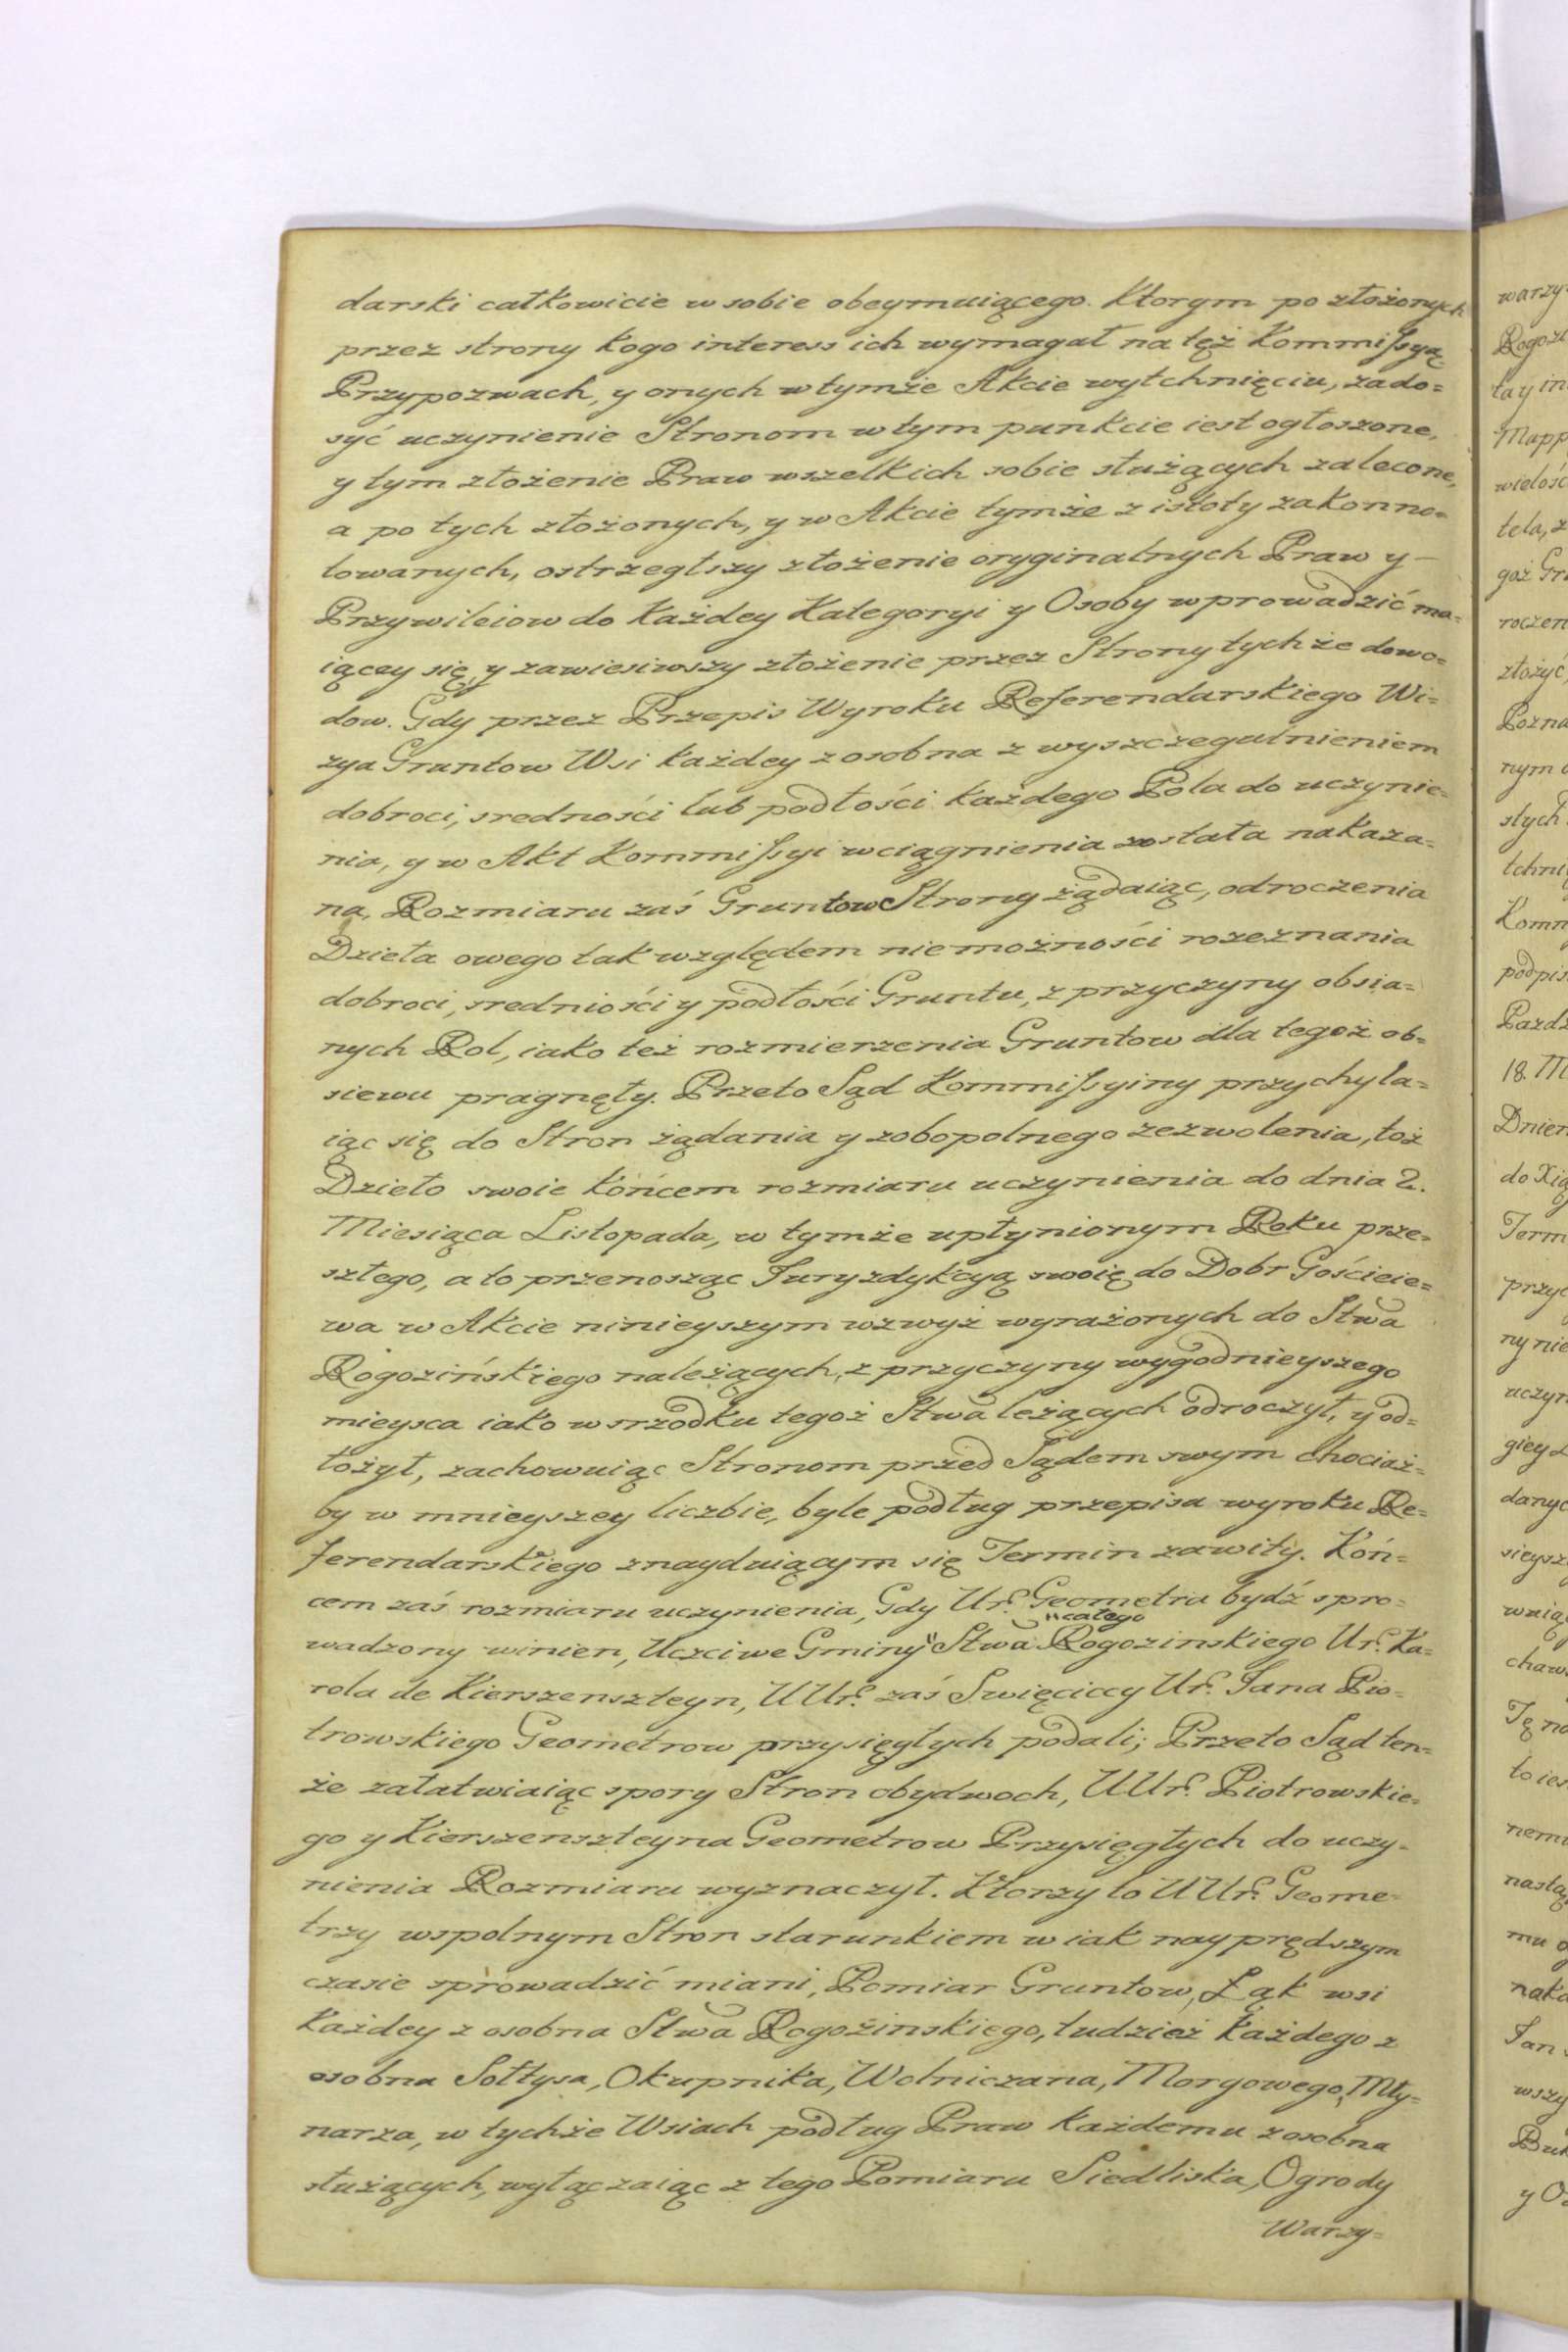 darski całkowicie w sobie obeymuiącego. Ktorym po złożonych
przez strony kogo interess ich wymagał na tęż Kommissyą
Przypozwach, y onych w tymże Akcie wytchnięciu, zado=
syć uczynienie Stronom w tym punkcie iest ogłoszone,
y tym złożenie Praw wszelkich sobie służących zalecone,
a po tych złożonych, y w Akcie tymże z istoty zakonno=
towanych, ostrzegłszy złożenie oryginalnych Praw y –
Przywileiow do każdey Kategoryi y Osoby wprowadzić ma=
iącey się, y zawiesiwszy złożenie przez Strony tychże dowo=
dow. Gdy przez Przepis Wyroku Referendarskiego Wi=
zya Gruntow Wsi każdey z osobna z wyszczegulnieniem
dobroci, sredności lub podłości każdego Pola do uczynie=
nia, y w Akt Kommissyi wciągnienia została nakaza=
na, Rozmiaru zaś Gruntow Strony żądaiąc, odroczenia
Dzieła owego tak względem niemożności rozeznania
dobroci, sredniości y podłości Gruntu, z przyczyny obsia=
nych Rol, iako też rozmierzenia Gruntow dla tegoż ob=
siewu pragnęły. Przeto Sąd Kommissyiny przychyla=
iąc się do Stron żądania y zobopolnego zezwolenia, toż
Dzieło swoie końcem rozmiaru uczynienia do dnia 2.
Miesiąca Listopada, w tymże upłynionym Roku prze=
szłego, a to przenosząc Juryzdykcyą swoię do Dobr Gościeie=
wa w Akcie ninieyszym wzwyż wyrażonych do Stwa
Rogozińskiego należących, z przyczyny wygodnieyszego
mieysca iako w srzodku tegoż Stwa leżących odroczył, y od=
łożył, zachowuiąc Stronom przed Sądem swym chociaż=
by w mnieyszey liczbie, byle podług przepisa wyroku Re=
ferendarskiego znayduiącym się Termin zawity. Koń=
cem zaś rozmiaru uczynienia, Gdy Ur. Geometra bydź spro=
"całego
wadzony winien, Uczciwe Gminy" Stwa Rogozinskiego Ur. Ka=
rola de Kierszenszteyn, UUr. zaś Swięciccy Ur. Jana Pio=
trowskiego Geometrow przysięgłych podali; Przeto Sąd ten=
że załatwiaiąc spory Stron obydwoch, UUr. Piotrowskie=
go y Kierszenszteyna Geometrow Przysięgłych do uczy=
nienia Rozmiaru wyznaczył. Ktorzy to UUr. Geome=
trzy wspolnym Stron starunkiem w iak nayprędszym
czasie sprowadzić miani, Pomiar Gruntow, Łąk wsi
każdey z osobna Stwa Rogożinskiego, tudzież każdego z
osobna Sołtysa, Okupnika, Wolniczana, Morgowego, Mły=
narza, w tychże Wsiach podług Praw każdemu z osobna
służących, wyłączaiąc z tego Pomiaru Siedliska, Ogrody
Warzy=